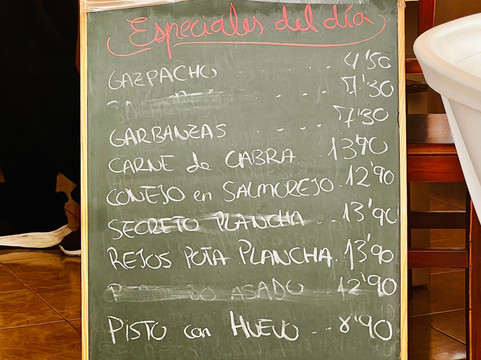 Especiales del día
GAZPACHO 4'50
. . . 7'30
GARBANZAS . . . . 7'30
CARNE de CABRA 13'90
CONEJO en SALMOREJO. 12'90
SECRETO PLANCHA .. 13'90
REJOS POTA PLANCHA. 13'90
ASADO 12'90
PISTO con HUEVO .. 8'90